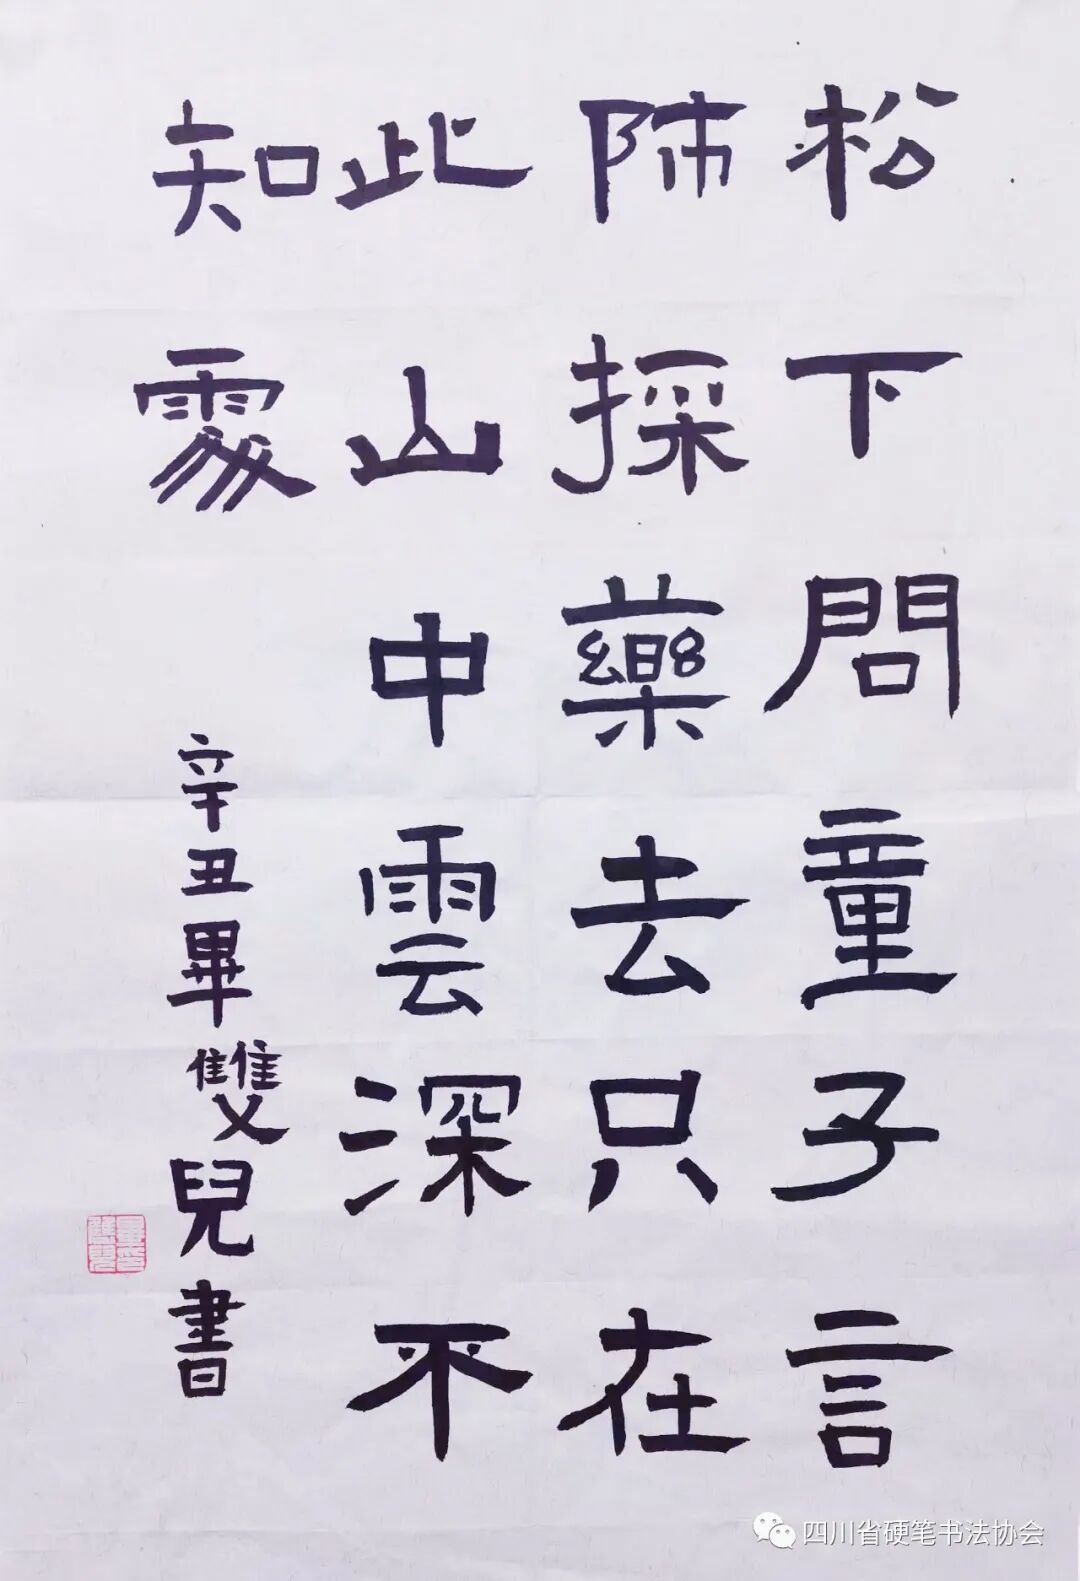 松下問童子言
師採藥去只在
此山中雲深不
知處
辛丑畢雙兒書
四川省硬笔书法协会